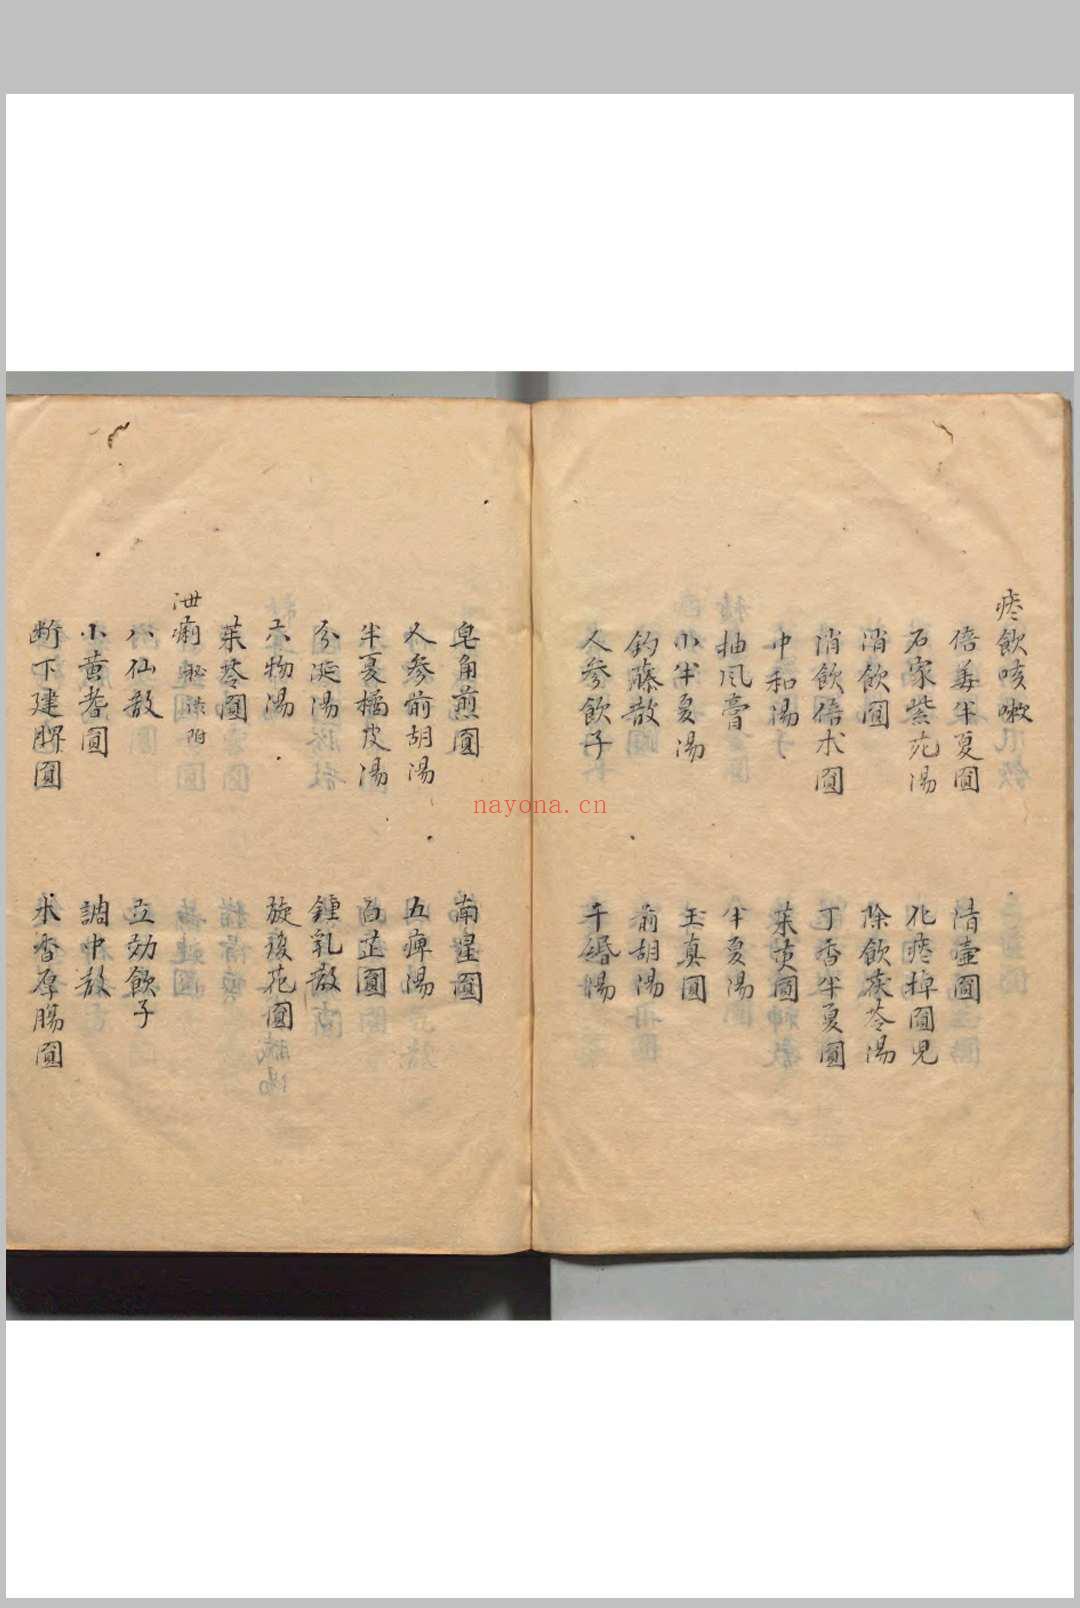 痰飲咳嗽
倍姜半夏圓
清壺圓
石家紫菀湯
化痰掉圓兒
消飲圓
除飲茯苓湯
消飲倍术圓
丁香半夏圓
中和湯
茱萸圓
抽風膏
半夏湯
小半夏湯
玉真圓
鈎藤散
前胡湯
人參飲子
千緡湯
皂角煎圓
南星圓
人參前胡湯
五痺湯
半夏橘皮湯
白芷圓
分涎湯
鍾乳散
六物湯
旋復花圓
茱苓圓
泄痢 秘澁附
八仙散
立効飲子
小黄耆圓
調中散
断下建脾圓
木香厚腸圓
nayona.cn